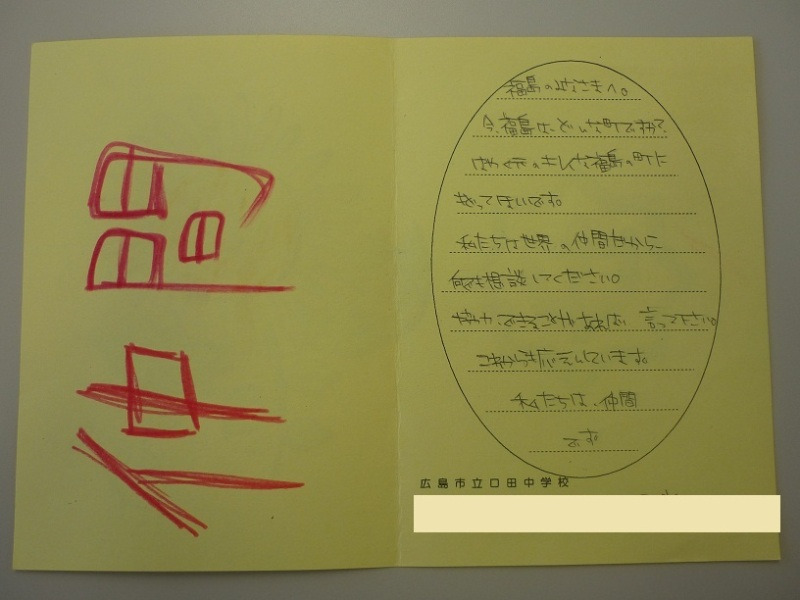 仲間
福島のみなさまへ。
今、福島は、どんな町ですか?
はやく元のキレイな福島の町に
もどってほしいです。
私たちは世界の仲間だから、
何でも相談してください。
協力できることがあれば、言って下さい。
これからも応えんしています。
私たちは、仲間
です
広島市立口田中学校